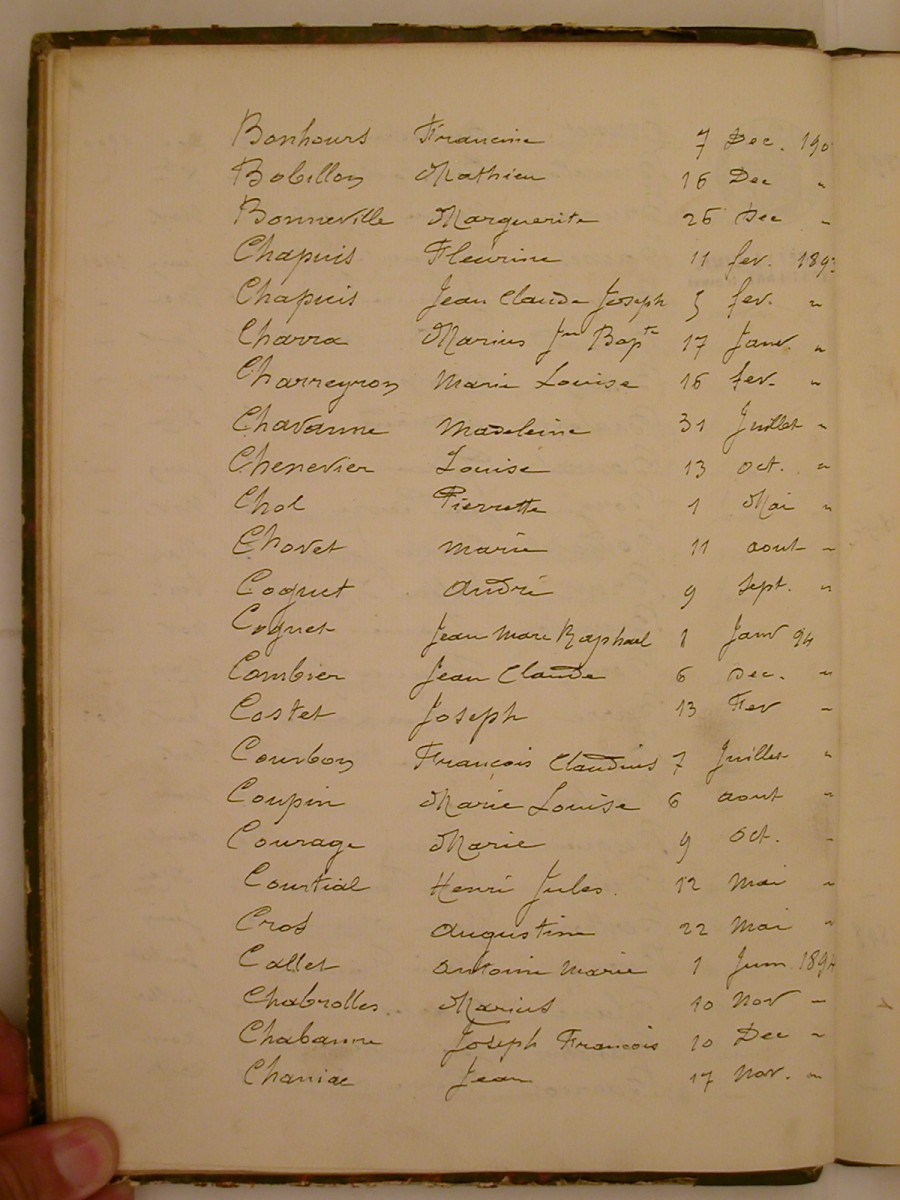 Bonhours Francine 7 Dec. 190
Bobillon Mathieu 16 Dec "
Bonneville Marguerite 26 Dec "
Chapuis Fleurine 11 fev. 189
Chapuis Jean Claude Joseph 5 fev. "
Charra Marius Jn Bapte 17 Janv. "
Charreyron Marie Louise 16 fev. "
Chavanne Madeleine 31 Juillet "
Chenevier Louise 13 oct. "
Chol Pierrette 1 Mai "
Chovet marie 11 aout "
Coquet André 9 Sept. "
Cognet Jean Marc Raphael 1 Janv 94
Combier Jean Claude 6 Dec. "
Costet Joseph 13 Fev "
Courbon François Claudius 7 Juillet "
Coupin Marie Louise 6 aout "
Courage Marie 9 oct. "
Courtial Henri Jules. 12 mai "
Cros Augustine 22 Mai "
Callet Antoine Marie 1 Juin 189
Chabrolles Marius 10 Nov "
Chabanne Joseph François 10 Dec "
Chaniac Jean 17 Nov. "